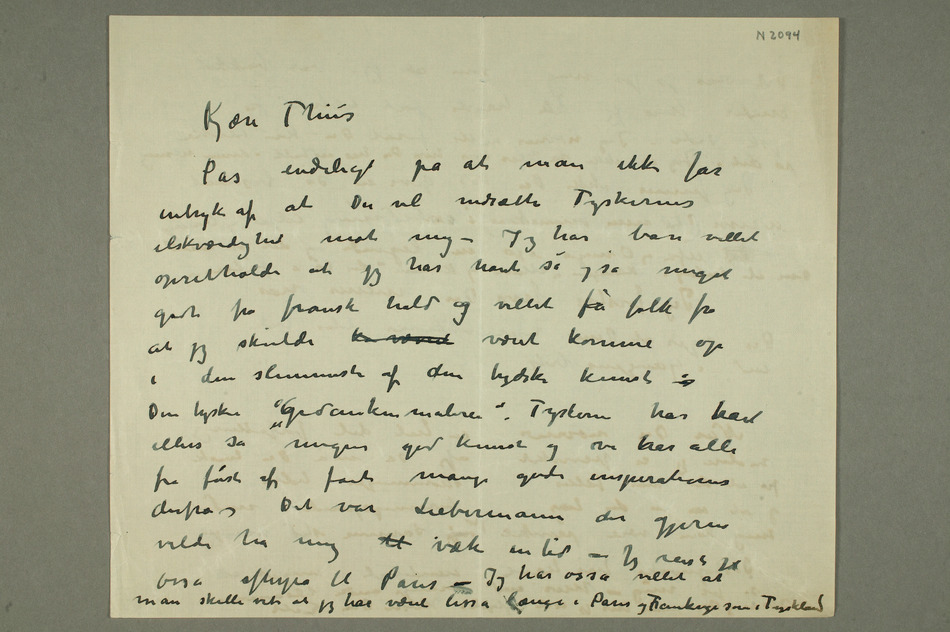 N 2094
Kjære Thiis
Pas endeligt på at man ikke får
intryk af at Du vil nedsætte Tyskernes
elskværdighed mot mig – Jeg har bare villet
opretholde at jeg har havt så og så meget
godt fra fransk hold og villet få folk fra
at jeg skulde være kommet op
i den slemmeste af den tydske kunst –
Den tyske "Gedankenmalerei". Tyskerne har havt
ellers så megen god kunst og vi har alle
fra først af fået mange gode inspirationer
derfra – Det var Liebermann der gjerne
vilde ha mig væk en tid – Jeg reiste jo
også aftrypa til Paris – Jeg har også villet at
man skulde vite at jeg har været ligså længe i Paris og Frankrige som i Tyskland